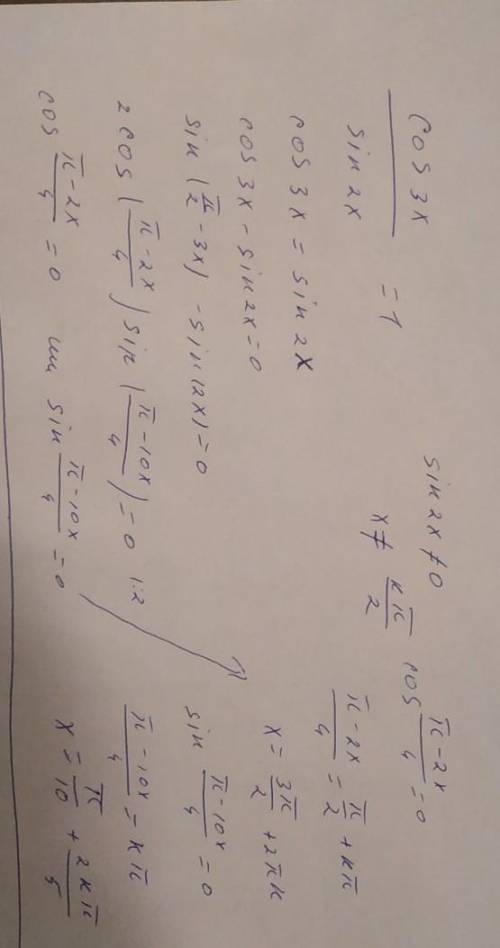 cos 3x / sin 2x = 1
cos 3x = sin 2x
cos 3x - sin 2x = 0
sin (π/2 - 3x) - sin (2x) = 0
2 cos (π-2x / 4) sin (π-10x / 4) = 0 |:2
cos π-2x / 4 = 0 или sin π-10x / 4 = 0
sin 2x ≠ 0
x ≠ kπ / 2
cos π-2x / 4 = 0
π-2x / 4 = π/2 + kπ
x = 3π/2 + 2πk
sin π-10x / 4 = 0
π-10x / 4 = kπ
x = π/10 + 2kπ/5